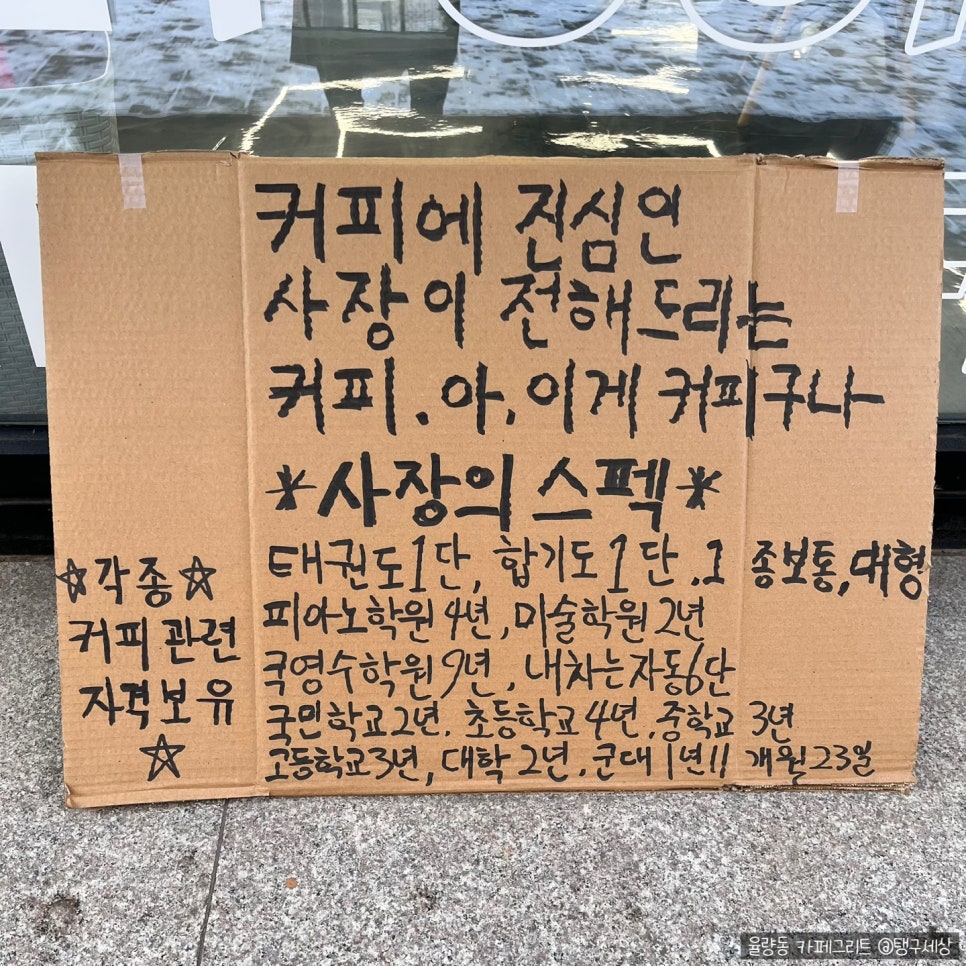 커피에 진심인
사장이 전해드리는
커피. 아, 이게 커피구나
*사장의 스펙*
태권도1단, 합기도1단, 1종보통, 대형
피아노학원 4년, 미술학원 2년
국영수학원 9년, 내차는자동6단
국민학교2년, 초등학교4년, 중학교 3년
고등학교3년, 대학 2년, 군대 1년11개월23일
☆각종☆
커피관련
자격보유
☆
율량동 카페그리트 @탱구세상